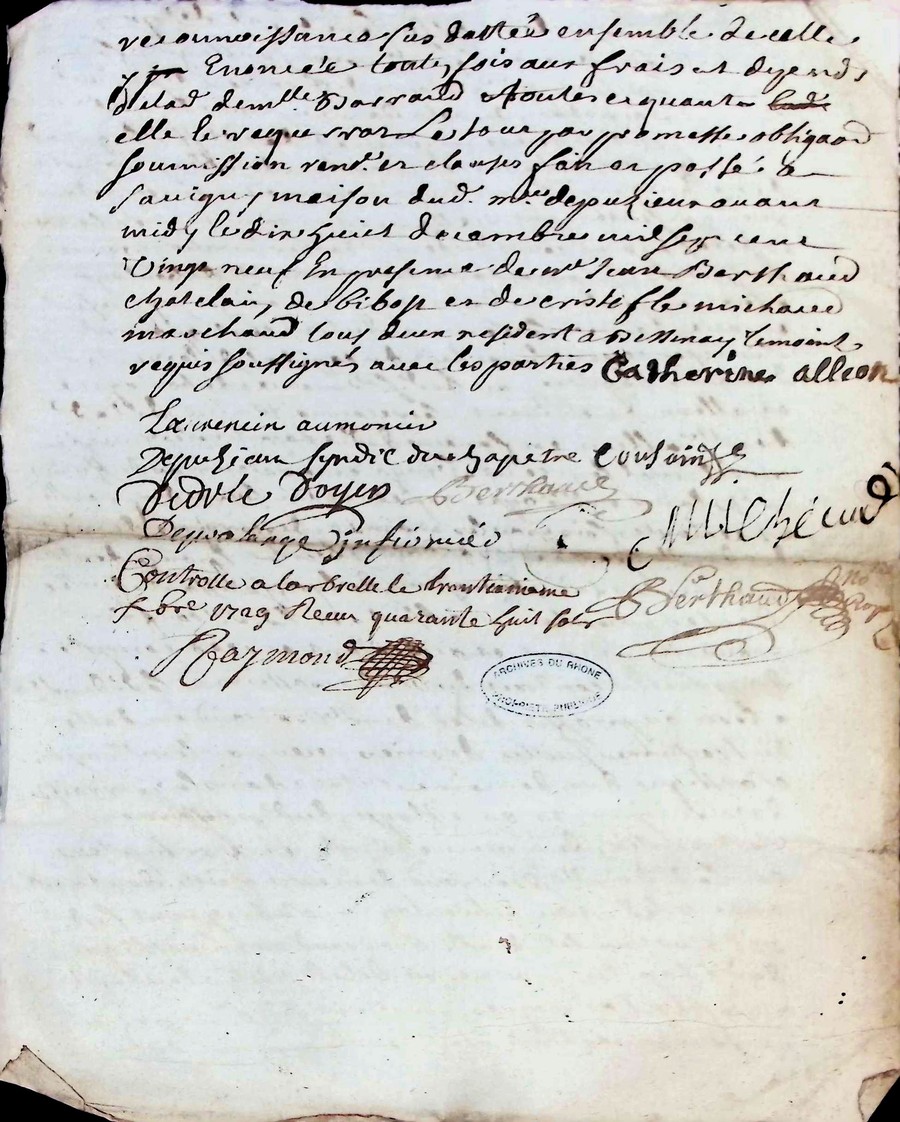 reconnoissance sus dattée ensemble de celle
y Enoncée toutes fois aux frais et depends
de lad demlle Barraud toutes et quantes lad
elle le requerrat Le tout par promesse obligaon
soumission renon et clauses fait et passé a
Savigny maison dud. mre depuzieux avant
midy le dix huict decembre mil sept cent
vingt neuf En presence de mre Jean Berthaud
chatelain de bibost et de cristofle michaud
marchand tous deux resident a Bessenay temoins
requis soussignés avec les parties Catherine alleon
Laurencin aumonier
Depuzieux syndic du chapitre Cousain
Vedrle Doyen Berthaud
Michaud
infirmier
Controllé a larbrelle le trentieme
xbre 1729 Receu quarante huit sols Berthaud no Roy
Raymond
ARCHIVES DU RHONE
PROPRIETE PUBLIQUE